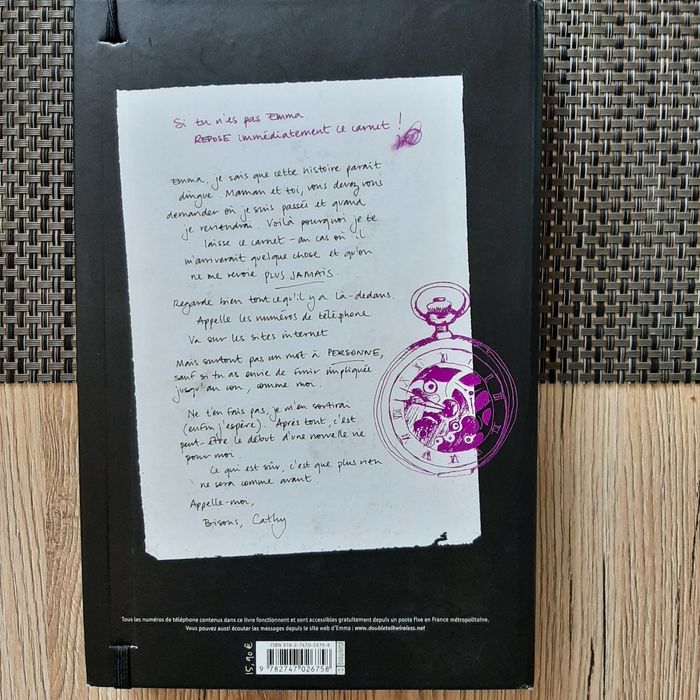 Si tu n'es pas Emma
REPOSE immédiatement ce carnet !
Emma, je sais que cette histoire paraît
dingue. Maman et toi, vous devez vous
demander où je suis passée et quand
je reviendrai. Voilà pourquoi je te
laisse ce carnet - au cas où il
m'arriverait quelque chose et qu'on
ne me revoie PLUS JAMAIS.
Regarde bien tout ce qu'il y a là-dedans.
Appelle les numéros de téléphone.
Va sur les sites internet
Mais surtout pas un mot à PERSONNE,
sauf si tu as envie de finir impliquée
jusqu'au cou, comme moi.
Ne t'en fais pas, je m'en sortirai
(enfin j'espère). Après tout, c'est
peut-être le début d'une nouvelle vie
pour moi.
Ce qui est sûr, c'est que plus rien
ne sera comme avant.
Appelle-moi,
Bisous, Cathy
Tous les numéros de téléphone contenus dans ce livre fonctionnent et sont accessibles gratuitement depuis un poste fixe en France métropolitaine.
Vous pouvez aussi écouter les messages depuis le site web d'Emma : www.doubletalkwireless.net
15,90 €
ISBN 978-2-7470-2675-8
9 782747 026758
bayard